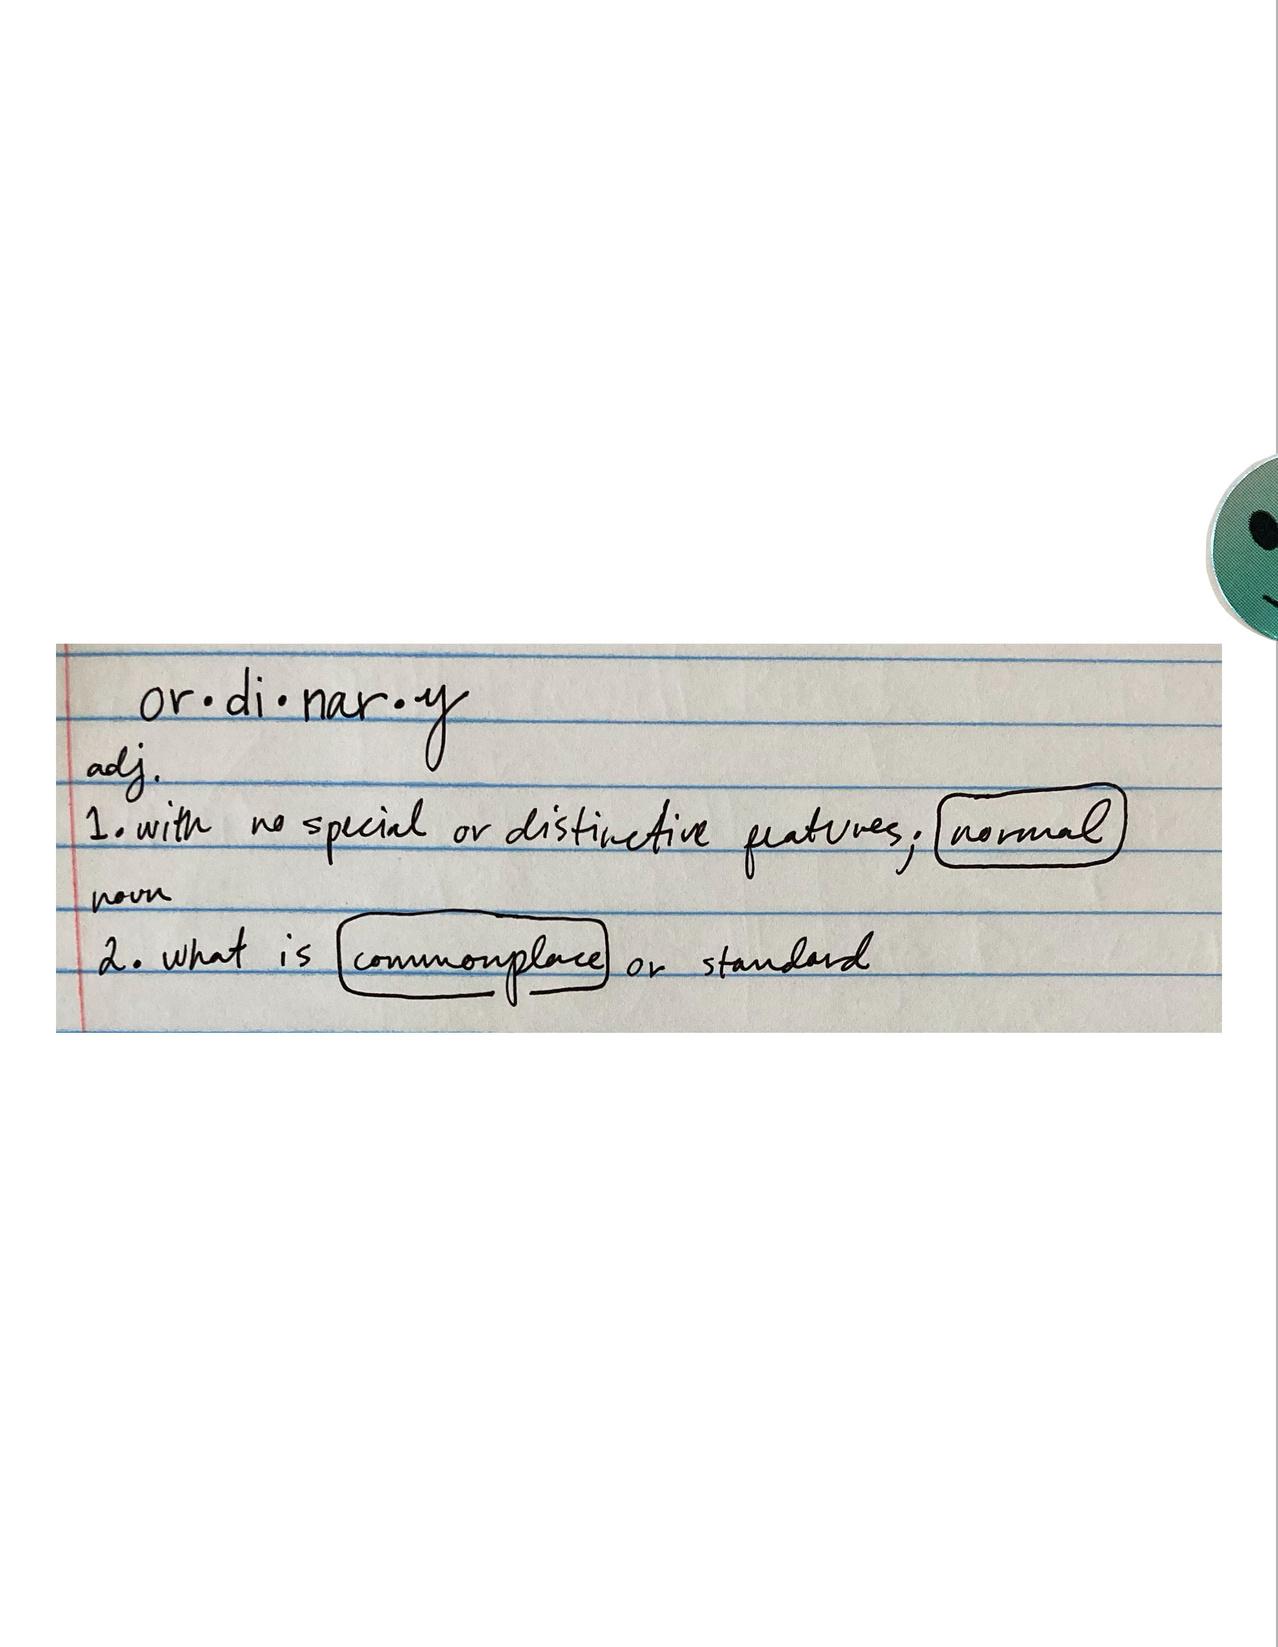 or·di·nar·y
adj.
1. with no special or distinctive features; normal
noun
2. what is commonplace or standard